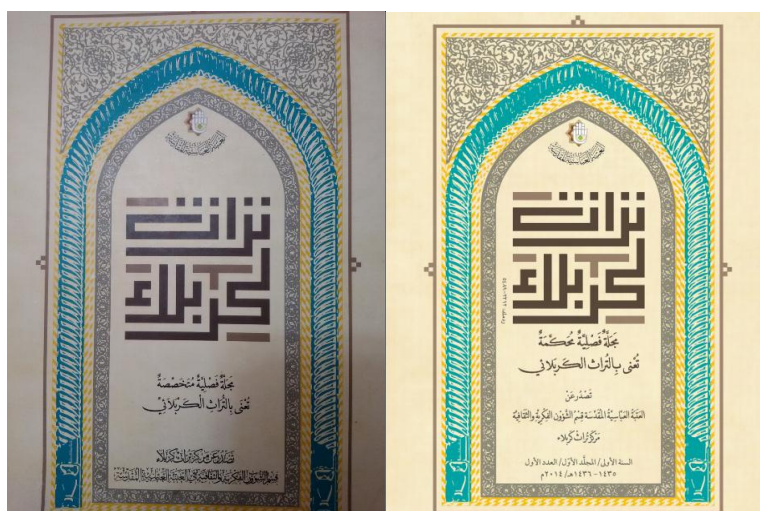 العتبة العباسية المقدسة
تراث
كربلاء
مَجَلَّةٌ فَصْلِيَّةٌ مُتَخَصِّصَةٌ
تُعْنَى بِالتُّرَاثِ الْكَرْبَلَائِيِّ
تصدر عن مركز تراث كربلاء
قسم الشؤون الفكرية والثقافية في العتبة العباسية المقدسة
العتبة العباسية المقدسة
تراث
كربلاء
مَجَلَّةٌ فَصْلِيَّةٌ مُحَكَّمَةٌ
تُعْنَى بِالتُّرَاثِ الْكَرْبَلَائِيِّ
تَصْدُرُ عَنْ
العتبة العباسية المقدسة قسم الشؤون الفكرية والثقافية
مركز تراث كربلاء
السنة الأولى/ المجلّد الأوّل/ العدد الأول
١٤٣٥-١٤٣٦هـ/ ٢٠١٤م